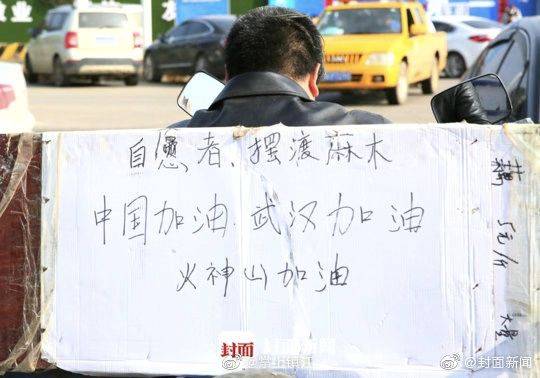 自愿者、摆渡麻木
中国加油.武汉加油
火神山加油
封面
封面新闻
@封面新闻